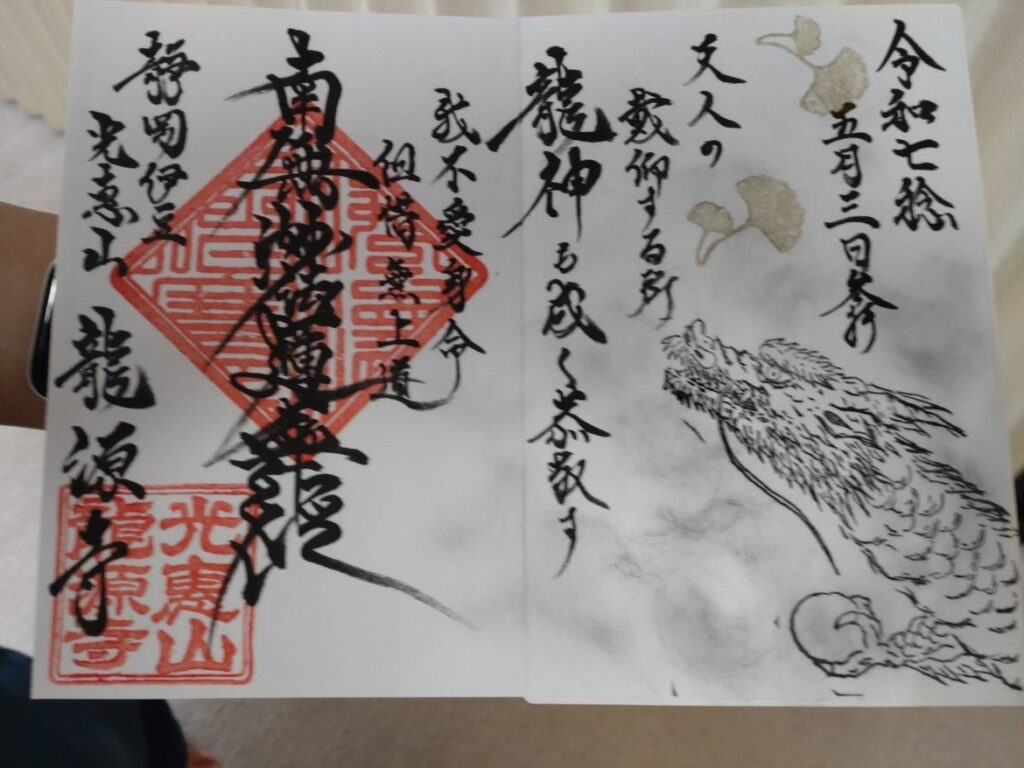 令和七稔
五月三日
天人の
戴仰する所
龍神も咸く恭敬す
我不愛身命
但惜無上道
南無妙法蓮華経
静岡伊豆
光恵山 龍源寺
光恵山
龍源寺